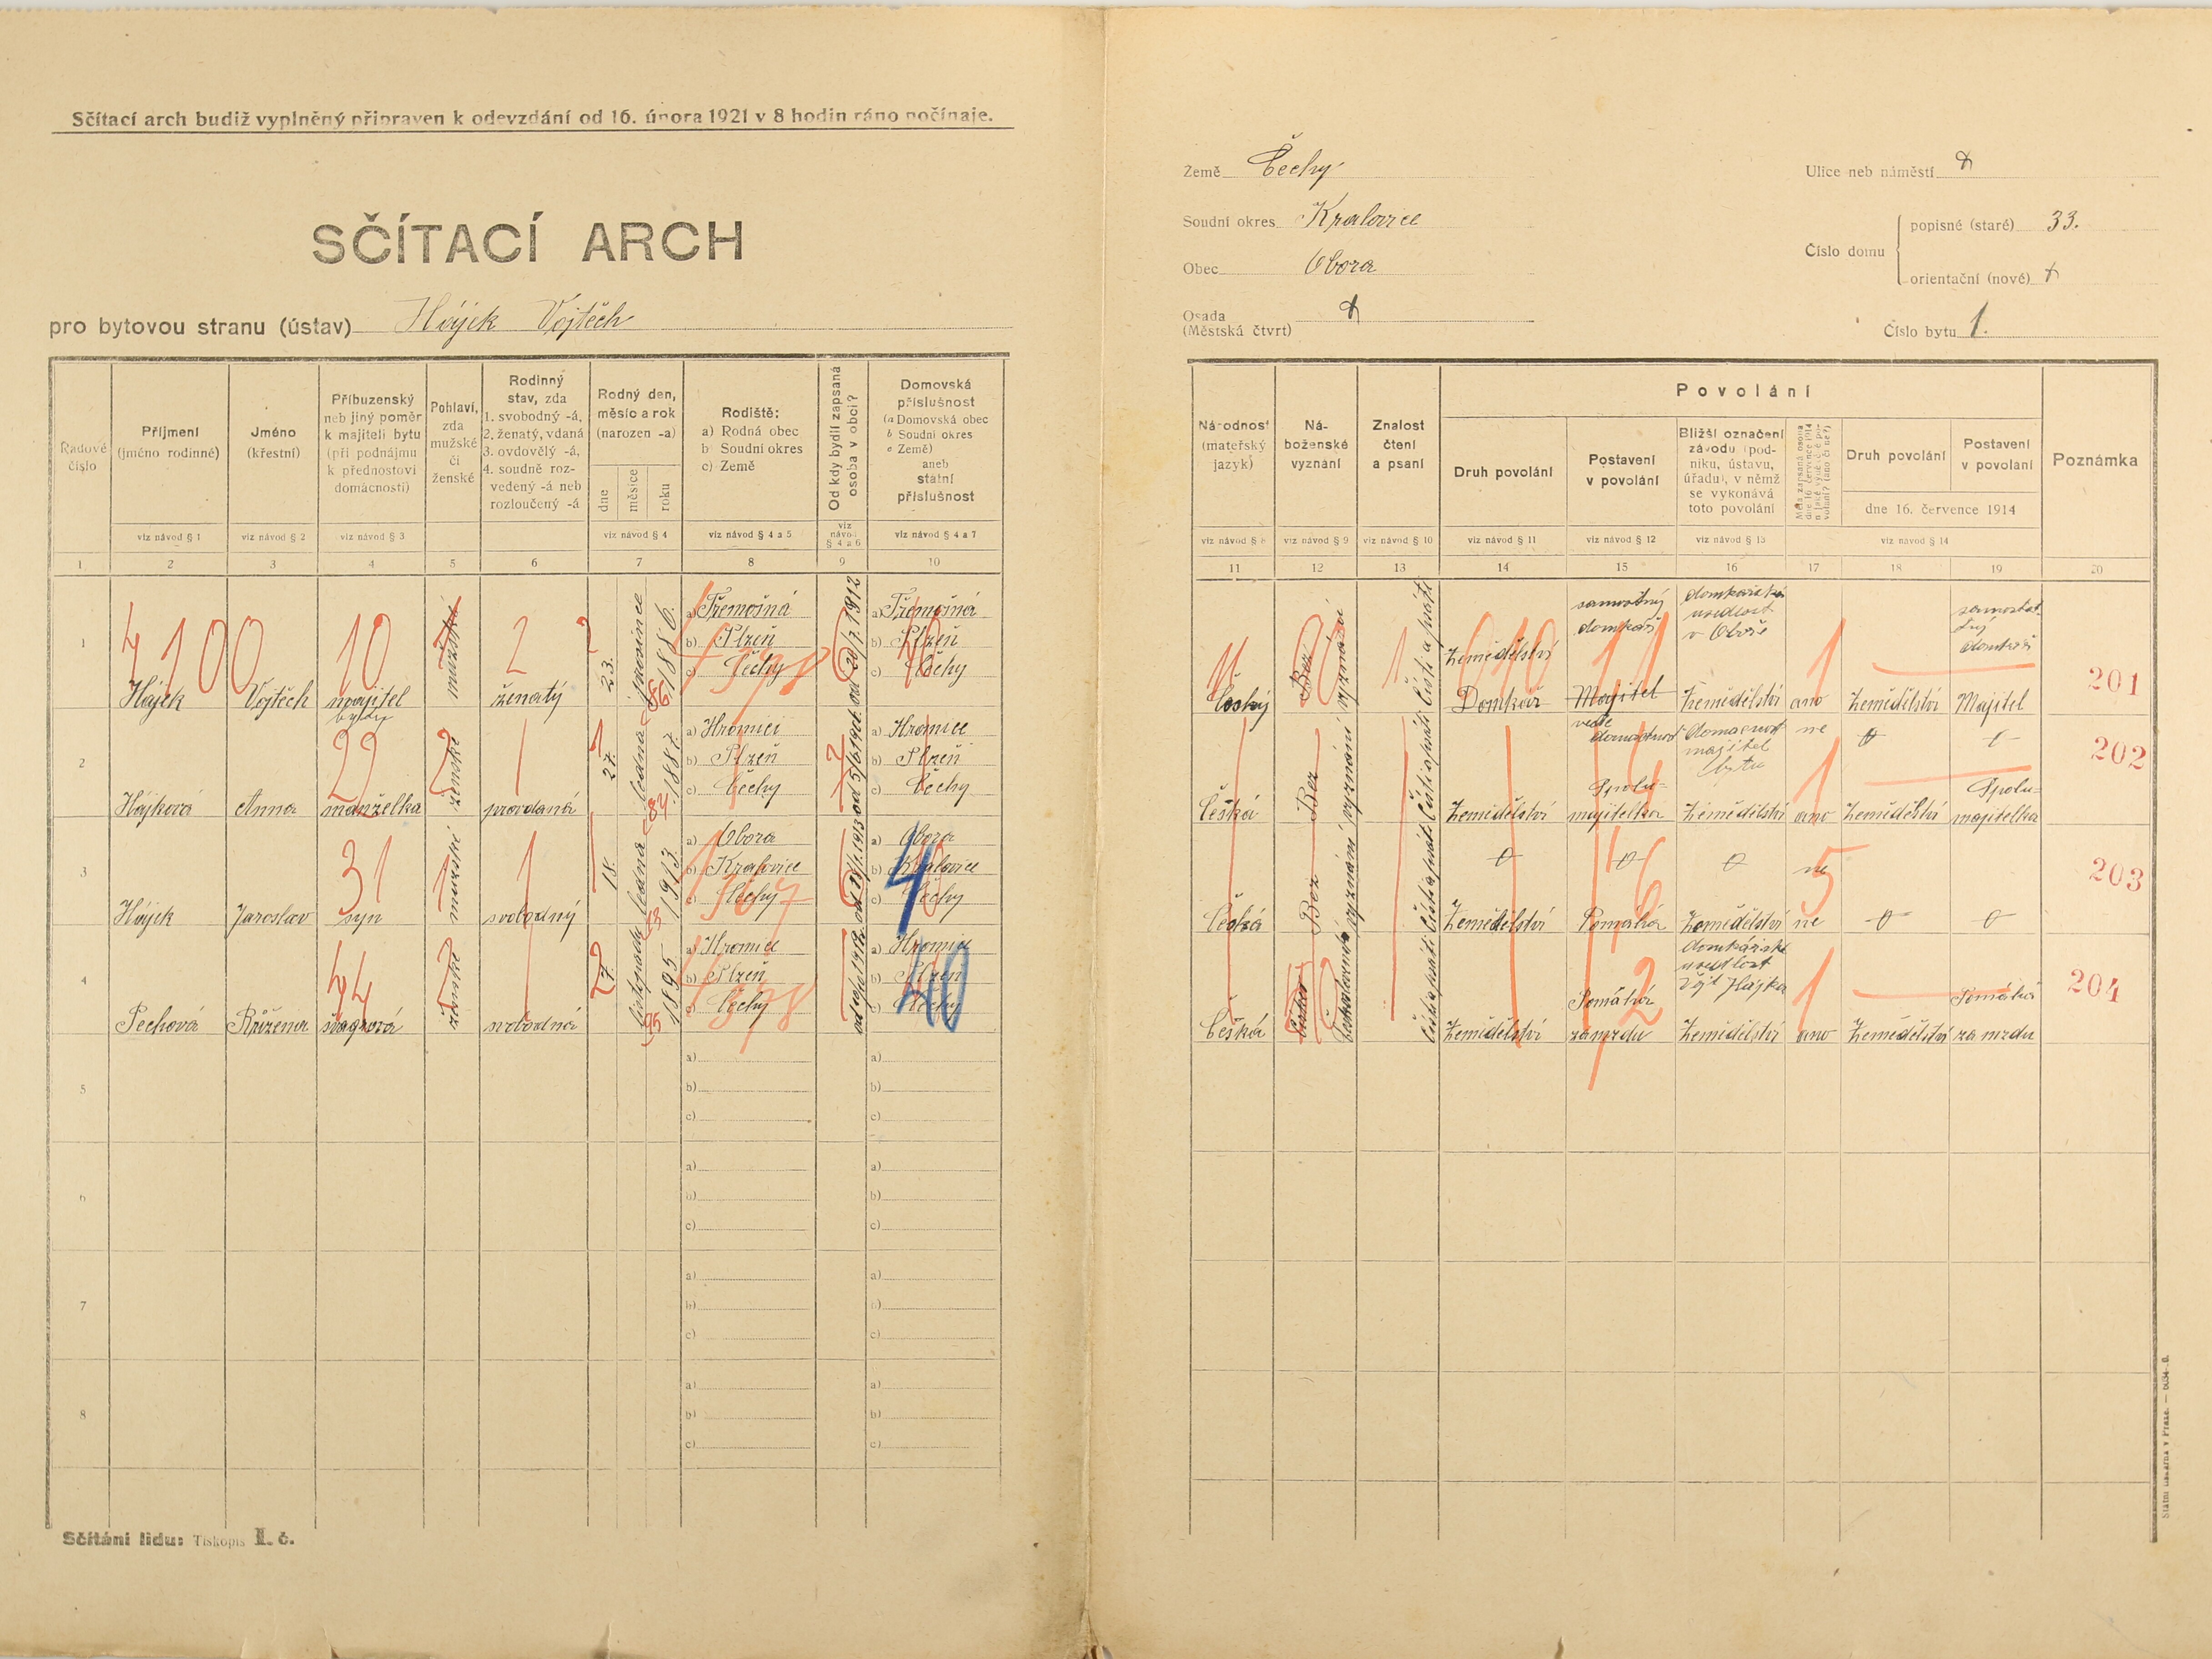 Sčítací arch budiž vyplněný připraven k odevzdání od 16. února 1921 v 8 hodin ráno počínaje.
SČÍTACÍ ARCH
pro bytovou stranu (ústav) Hájek Vojtěch
Země Čechy
Soudní okres Kralovice
Obec Obora
Osada
(Městská čtvrt)
Ulice neb náměstí
Číslo domu
popisné (staré) 33.
orientační (nové)
Číslo bytu 1.
Řadové číslo
Příjmení (jméno rodinné)
Jméno (křestní)
Příbuzenský neb jiný poměr k majiteli bytu (při podnájmu k přednostovi domácnosti)
Pohlaví, zda mužské či ženské
Rodinný stav, zda 1. svobodný -á, 2. ženatý, vdaná 3. ovdovělý -á, 4. soudně rozvedený -á neb rozloučený -á
Rodný den, měsíc a rok (narozen -a)
dne měsíce roku
Rodiště:
a) Rodná obec
b) Soudní okres
c) Země
Od kdy bydlí zapsaná osoba v obci?
Domovská příslušnost
(a Domovská obec
b Soudní okres
c Země)
aneb
státní příslušnost
viz návod § 1 viz návod § 2 viz návod § 3 viz návod § 4 viz návod § 4 a 5 viz návod § 4 a 6 viz návod § 4 a 7
1 2 3 4 5 6 7 8 9 10
1 Hájek Vojtěch majitel bytu mužské ženatý 23. 1886.
a) Třemošná
b) Plzeň
c) Čechy
od 20/7 1912
a) Třemošná
b) Plzeň
c) Čechy
2 Hájková Anna manželka ženské provdaná 27. ledna 1887.
a) Hromici
b) Plzeň
c) Čechy
a) Hromice
b) Plzeň
c) Čechy
3 Hájek Jaroslav syn mužské svobodný 18. ledna 1913.
a) Obora
b) Kralovice
c) Čechy
a) Obora
b) Kralovice
c) Čechy
4 Pechová Růžena švagrová ženské svobodná 27. listopadu 1895
a) Hromice
b) Plzeň
c) Čechy
a) Hromice
b) Plzeň
c) Čechy
5
a)
b)
c)
a)
b)
c)
6
a)
b)
c)
a)
b)
c)
7
a)
b)
c)
a)
b)
c)
8
a)
b)
c)
a)
b)
c)
Sčítání lidu: Tiskopis I. č.
Národnost (mateřský jazyk)
Náboženské vyznání
Znalost čtení a psaní
Povolání
Druh povolání
Postavení v povolání
Bližší označení závodu (podniku, ústavu, úřadu), v němž se vykonává toto povolání
Druh povolání
Postavení v povolání
dne 16. července 1914
Poznámka
viz návod § 8 viz návod § 9 viz návod § 10 viz návod § 11 viz návod § 12 viz návod § 13 viz návod § 14
11 12 13 14 15 16 17 18 19 20
Český Bez vyznání Čísti a psáti Zemědělství Domkář samostný domkář Majitel domkářská usedlost v Oboře Zemědělství ano Zemědělství Majitel 201
Česká Bez vyznání Čísti a psáti Zemědělství vede domácnost Spolumajitelka domácnost majitel bytu Zemědělství ne ano Zemědělství Spolumajitelka 202
Česká Bez vyznání Čísti a psáti Zemědělství Pomáhá Zemědělství ne ne 203
Česká Čísti a psáti Zemědělství Pomáhá za mzdu domkářská usedlost Vojt Hájka Zemědělství ano Zemědělství Pomáhá za mzdu 204